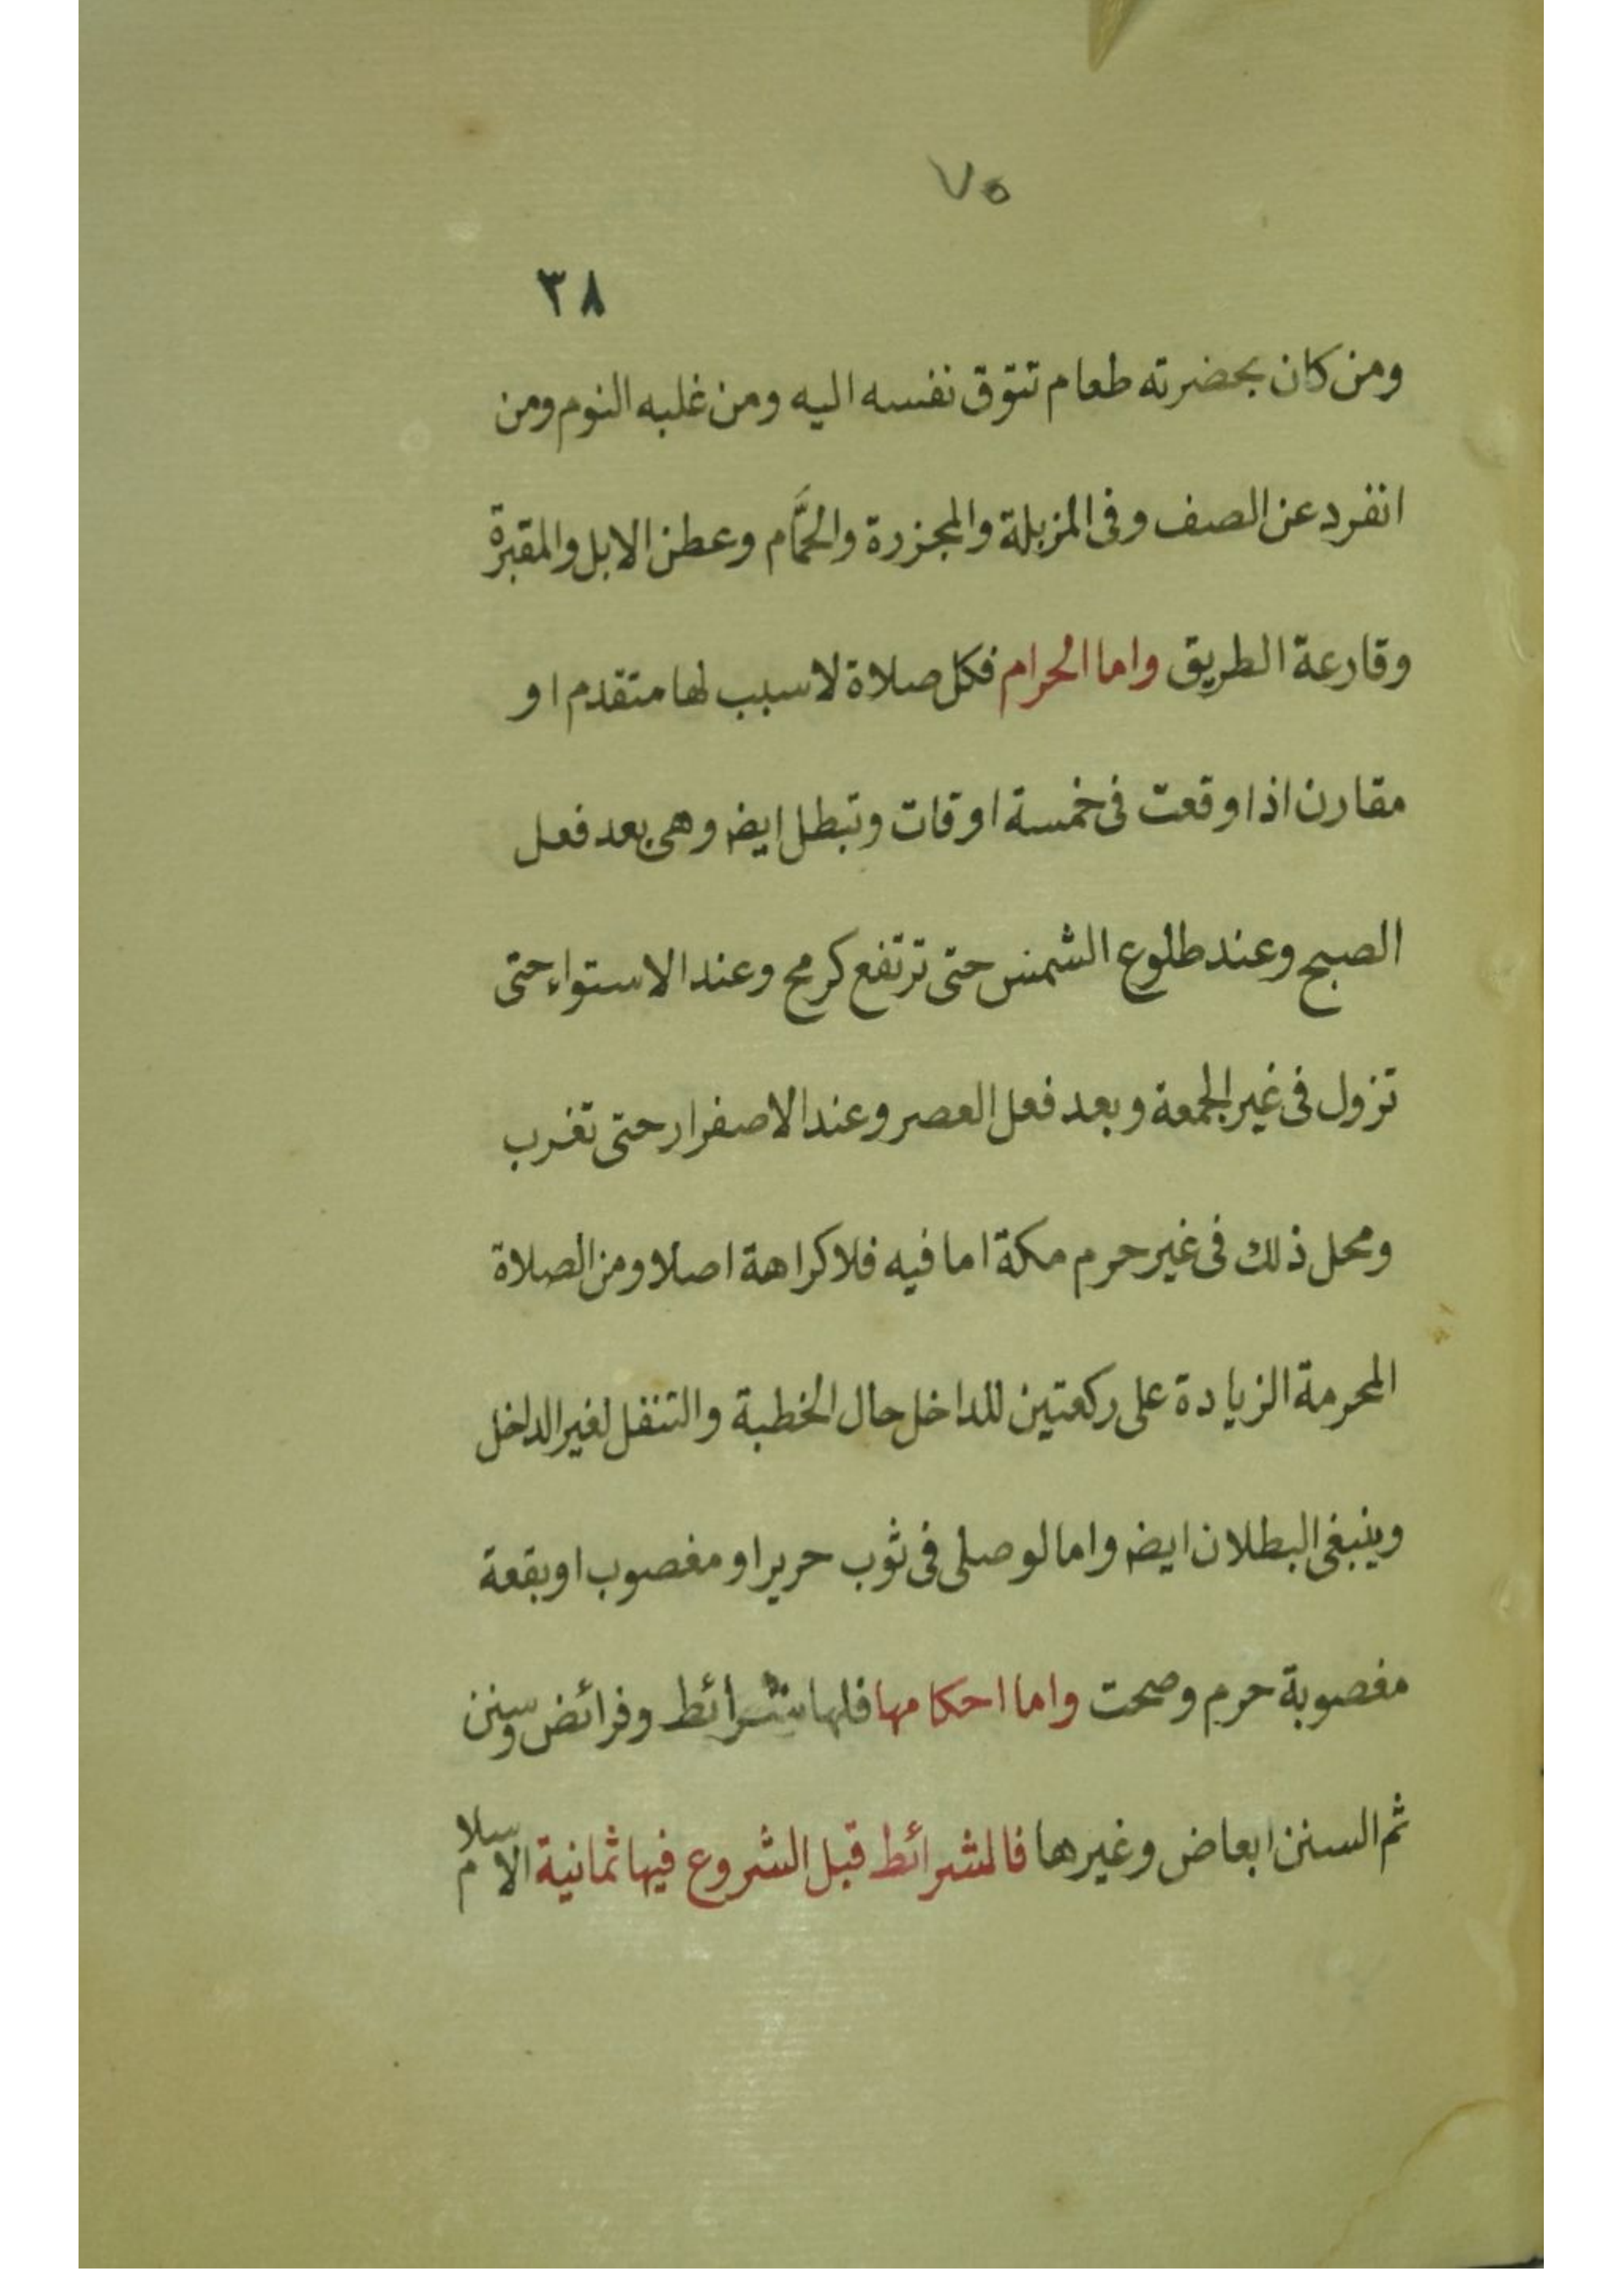 ٧٥
٣٨
ومن كان بحضرته طعام تتوق نفسه اليه ومن غلبه النوم ومن
انفرد عن الصف وفى المزبلة والمجزرة والحمَّام وعطن الابل والمقبرة
وقارعة الطريق واما الحرام فكل صلاة لا سبب لها متقدم او
مقارن اذا وقعت فى خمسة اوقات وتبطل ايضه وهى بعد فعل
الصبح وعند طلوع الشمس حتى ترتفع كرمح وعند الاستواء حتى
تزول فى غير الجمعة وبعد فعل العصر وعند الاصفرار حتى تغرب
ومحل ذلك فى غير حرم مكة اما فيه فلا كراهة اصلا ومن الصلاة
المحرمة الزيادة على ركعتين للداخل حال الخطبة والتنفل لغير الداخل
وينبغى البطلان ايضه واما لو صلى فى ثوب حرير او مغصوب او بقعة
مغصوبة حرم وصحت واما احكامها فلها شرائط وفرائض وسنن
ثم السنن ابعاض وغيرها فالشرائط قبل الشروع فيها ثمانية الاسلام